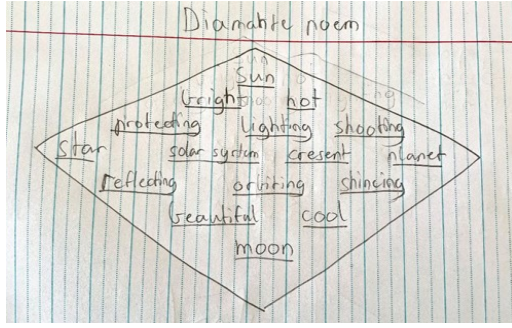 Diamante poem
sun
bright hot
protecting lighting shooting
star solar system cresent planet
reflecting orbiting shincing
beautiful cool
moon